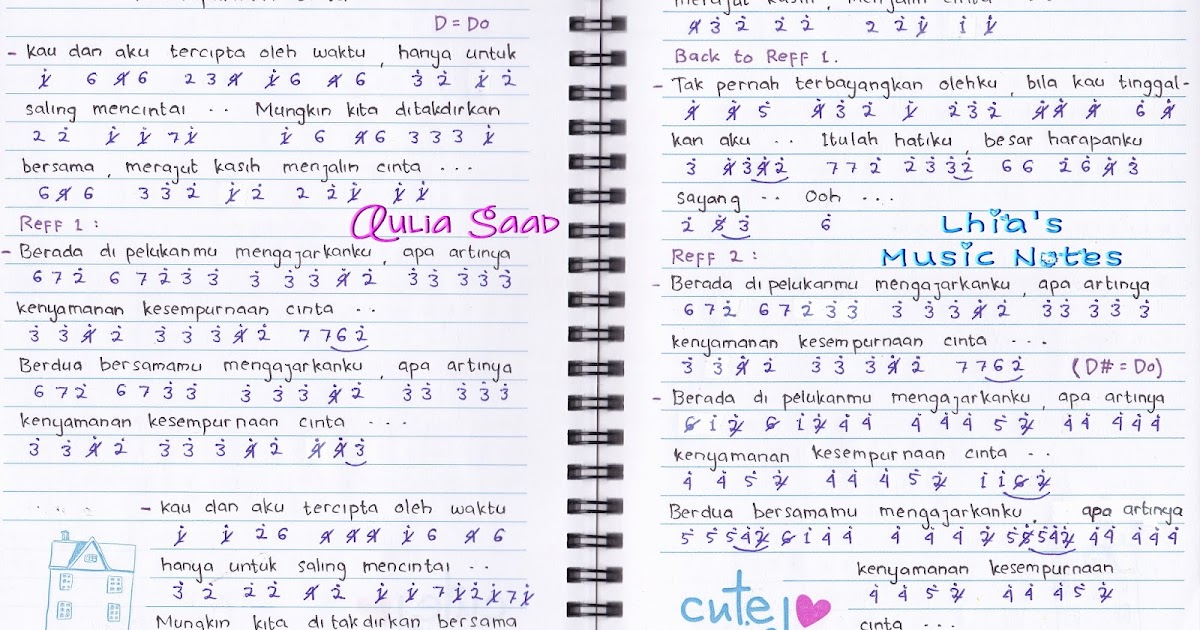 D = Do
- kau dan aku tercipta oleh waktu, hanya untuk
1 6 4 6 2 3 4 1 6 4 6 3 2 1 2
saling mencintai .. Mungkin kita ditakdirkan
2 2 1 1 7 1 1 6 4 6 3 3 3 1
bersama, merajut kasih menjalin cinta ...
6 4 6 3 3 2 1 2 2 2 1 1 1
Reff 1 :
Qulia Saad
- Berada di pelukanmu mengajarkanku, apa artinya
6 7 2 6 7 2 3 3 3 3 3 4 2 3 3 3 3 3
kenyamanan kesempurnaan cinta ..
3 3 4 2 3 3 3 4 2 7 7 6 2
Berdua bersamamu mengajarkanku, apa artinya
6 7 2 6 7 3 3 3 3 3 4 2 3 3 3 3 3
kenyamanan kesempurnaan cinta ...
3 3 4 2 3 3 3 4 2 4 4 3
- kau dan aku tercipta oleh waktu
1 1 2 6 4 4 4 1 6 4 6
hanya untuk saling mencintai ..
3 2 2 2 4 2 1 1 7 1 2 1 7 1
Mungkin kita ditakdirkan bersama
merajut kasih, menjalin cinta ...
4 3 2 2 2 2 2 1 1 1
Back to Reff 1.
- Tak pernah terbayangkan olehku, bila kau tinggal-
4 4 5 4 3 2 1 2 3 2 4 4 4 6 4
kan aku .. Itulah hatiku, besar harapanku
3 4 3 4 2 7 7 2 2 3 3 2 6 6 2 6 4 3
sayang .. Ooh ...
2 5 3 6
Lhia's
Music Notes
Reff 2 :
- Berada di pelukanmu mengajarkanku, apa artinya
6 7 2 6 7 2 3 3 3 3 3 4 2 3 3 3 3 3
kenyamanan kesempurnaan cinta ...
3 3 4 2 3 3 3 4 2 7 7 6 2 (D# = Do)
- Berada di pelukanmu mengajarkanku, apa artinya
6 1 2 6 1 2 4 4 4 4 4 5 2 4 4 4 4 4
kenyamanan kesempurnaan cinta ..
4 4 5 2 4 4 4 5 2 1 1 6 2
Berdua bersamamu mengajarkanku, apa artinya
5 5 5 4 2 6 1 4 4 4 4 4 2 5 5 5 4 2 4 4 4 4 4
kenyamanan kesempurnaan
4 4 5 2 4 4 4 5 2
cute!
cinta ...